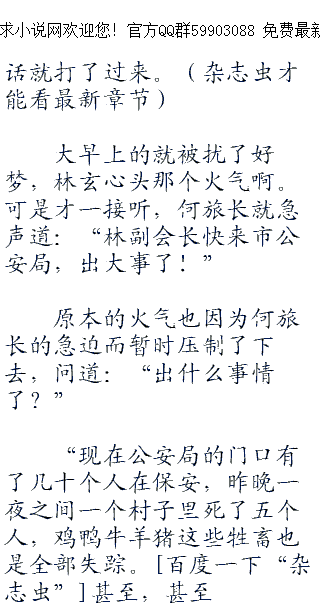 求小说网欢迎您！官方QQ群59903088 免费最新
话就打了过来。（杂志虫才
能看最新章节）
大早上的就被扰了好
梦，林玄心头那个火气啊。
可是才一接听，何旅长就急
声道：“林副会长快来市公
安局，出大事了！”
原本的火气也因为何旅
长的急迫而暂时压制了下
去，问道：“出什么事情
了？”
“现在公安局的门口有
了几十个人在保安，昨晚一
夜之间一个村子里死了五个
人，鸡鸭牛羊猪这些牲畜也
是全部失踪。[百度一下“杂
志虫”]甚至，甚至